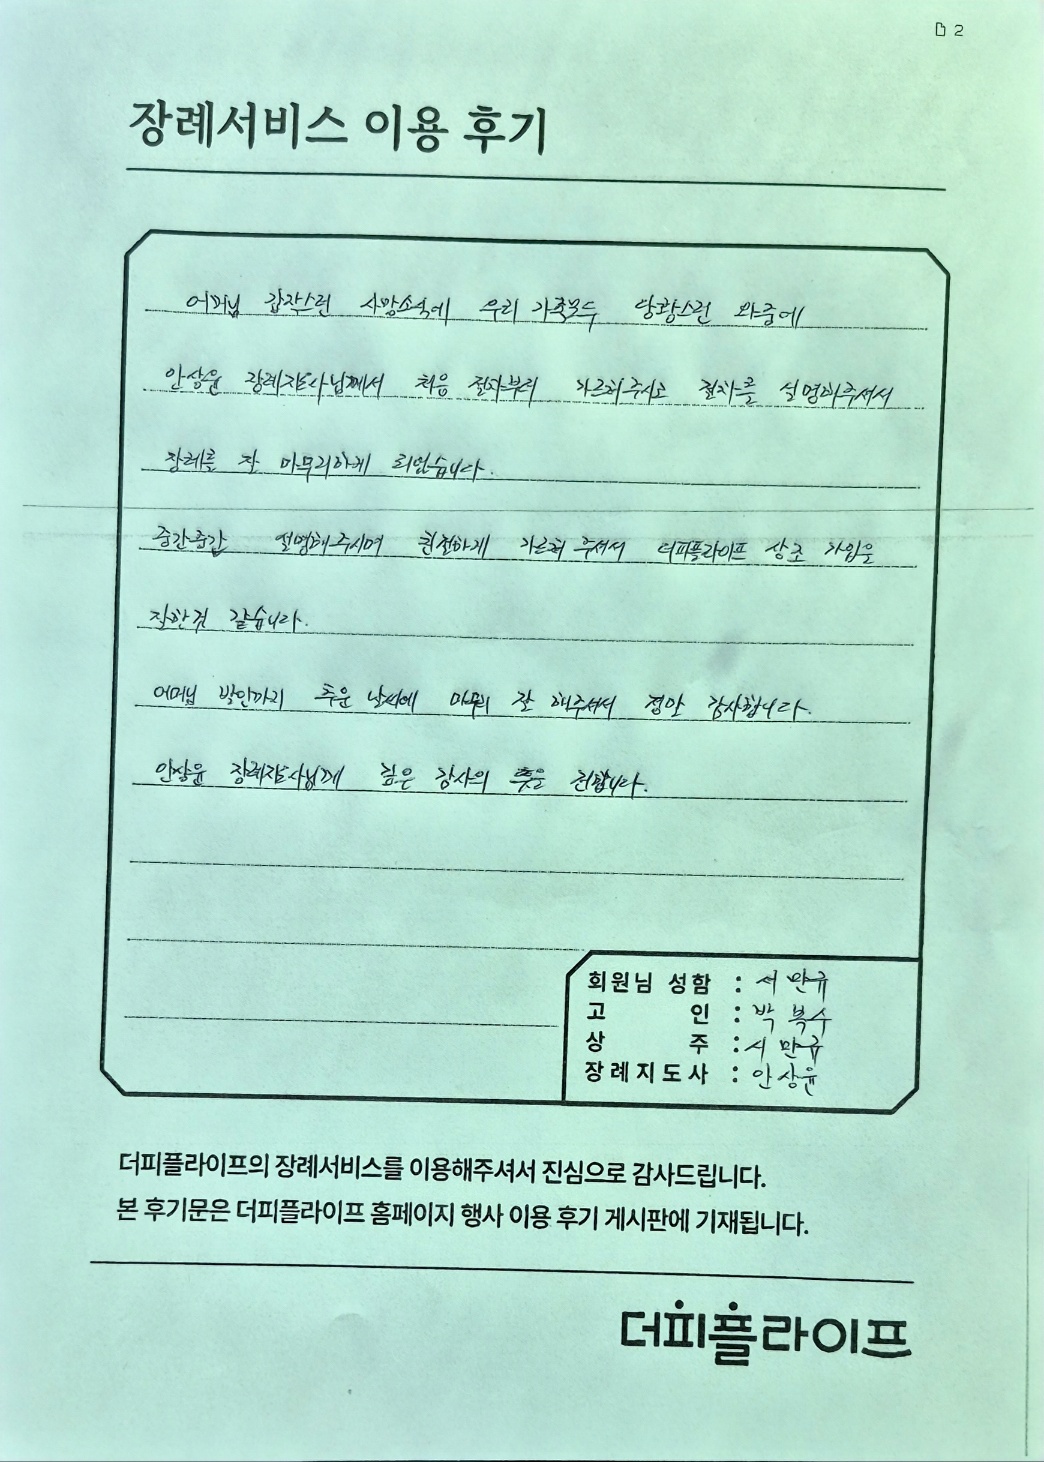 2
장례서비스 이용 후기
어머님 갑작스런 사망소식에 우리 가족모두 당황스런 와중에
안상윤 장례지도사님께서 처음 절차부터 가르쳐주시고 절차를 설명해주셔서
장례를 잘 마무리하게 되었습니다.
중간중간 설명해주시며 친절하게 가르쳐 주셔서 더피플라이프 상조 가입을
잘한것 같습니다.
어머님 발인까지 추운 날씨에 마무리 잘 해주셔서 정말 감사합니다.
안상윤 장례지도사님께 깊은 감사의 뜻을 전합니다.
회원님 성함 : 서만규
고 인 : 박복수
상 주 : 서만규
장례지도사 : 안상윤
더피플라이프의 장례서비스를 이용해주셔서 진심으로 감사드립니다.
본 후기문은 더피플라이프 홈페이지 행사 이용 후기 게시판에 기재됩니다.
더피플라이프